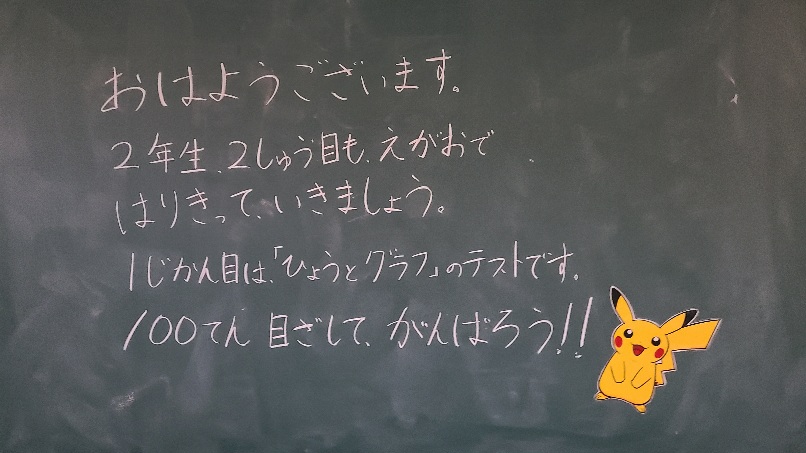 おはようございます。
2年生、2しゅう目も、えがおで
はりきって、いきましょう。
1じかん目は、「ひょうとグラフ」のテストです。
100てん 目ざして、がんばろう!!